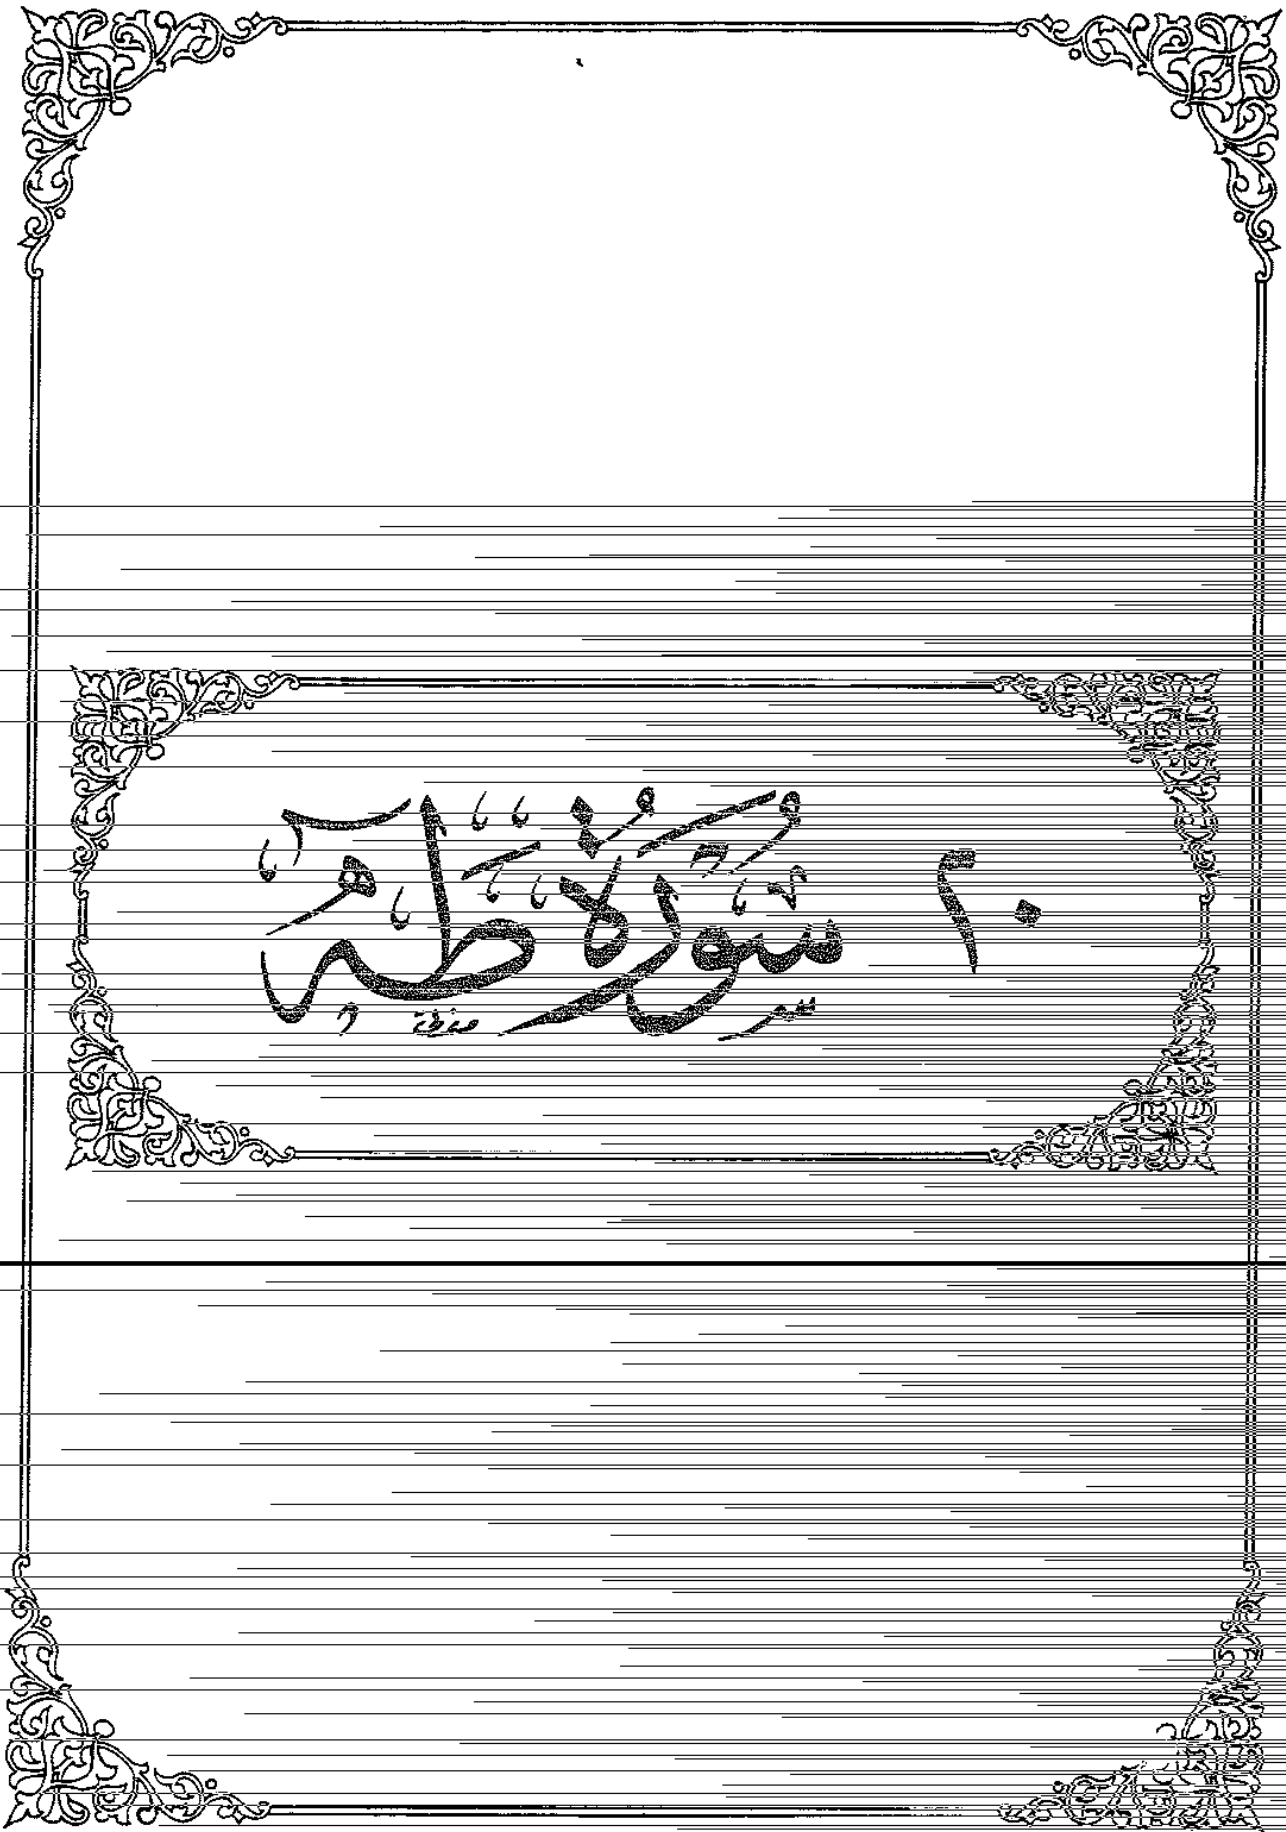 ٢٠ سُوْرَةُ طٰهٰ